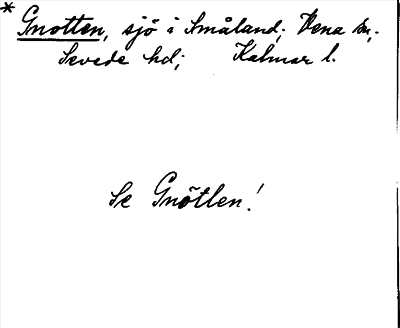 * Gnotten, sjö i Småland; Vena sn;
Sevede hd; Kalmar l.
Se Gnötlen!